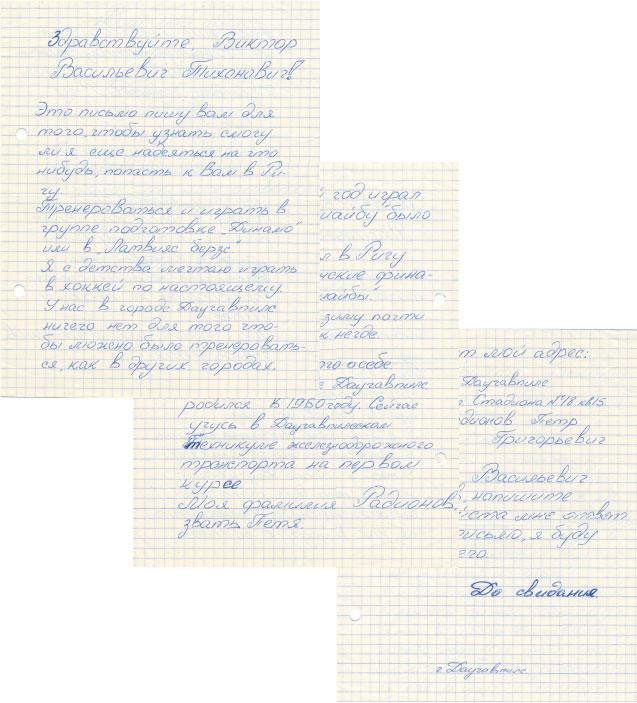 Здравствуйте, Виктор
Васильевич Тихонавич!
Это письмо пишу вам для
того, чтобы узнать смогу
ли я еще надеяться на что
нибудь, попасть к вам в Ри-
гу.
Тренероваться и играть в
группе подготовке „Динамо"
или в „Латвияс берзс"
Я с детства мечтаю играть
в хоккей по настоящему.
У нас в городе Даугавпилс
ничего нет для того что-
бы можно было тренеровать-
ся, как в других городах.
год играл
шайбу было
л в Ригу
ские фина-
айбы".
зиму почти
к негде
о себе
г Даугавпилс
родился в 1960 году. Сейчас
учусь в Даугавпилсском
техникуме железнодорожного
транспорта на первом
курсе
Моя фамилия Радионов,
звать Петя.
т мой адрес:
Даугавпилс
г. Стадиона №18 кв15.
дионов Петр
Григорьевич
Васильевич
, напишите
йста мне ответ
письмо, я буду
его.
До свидания
г. Даугавпилс